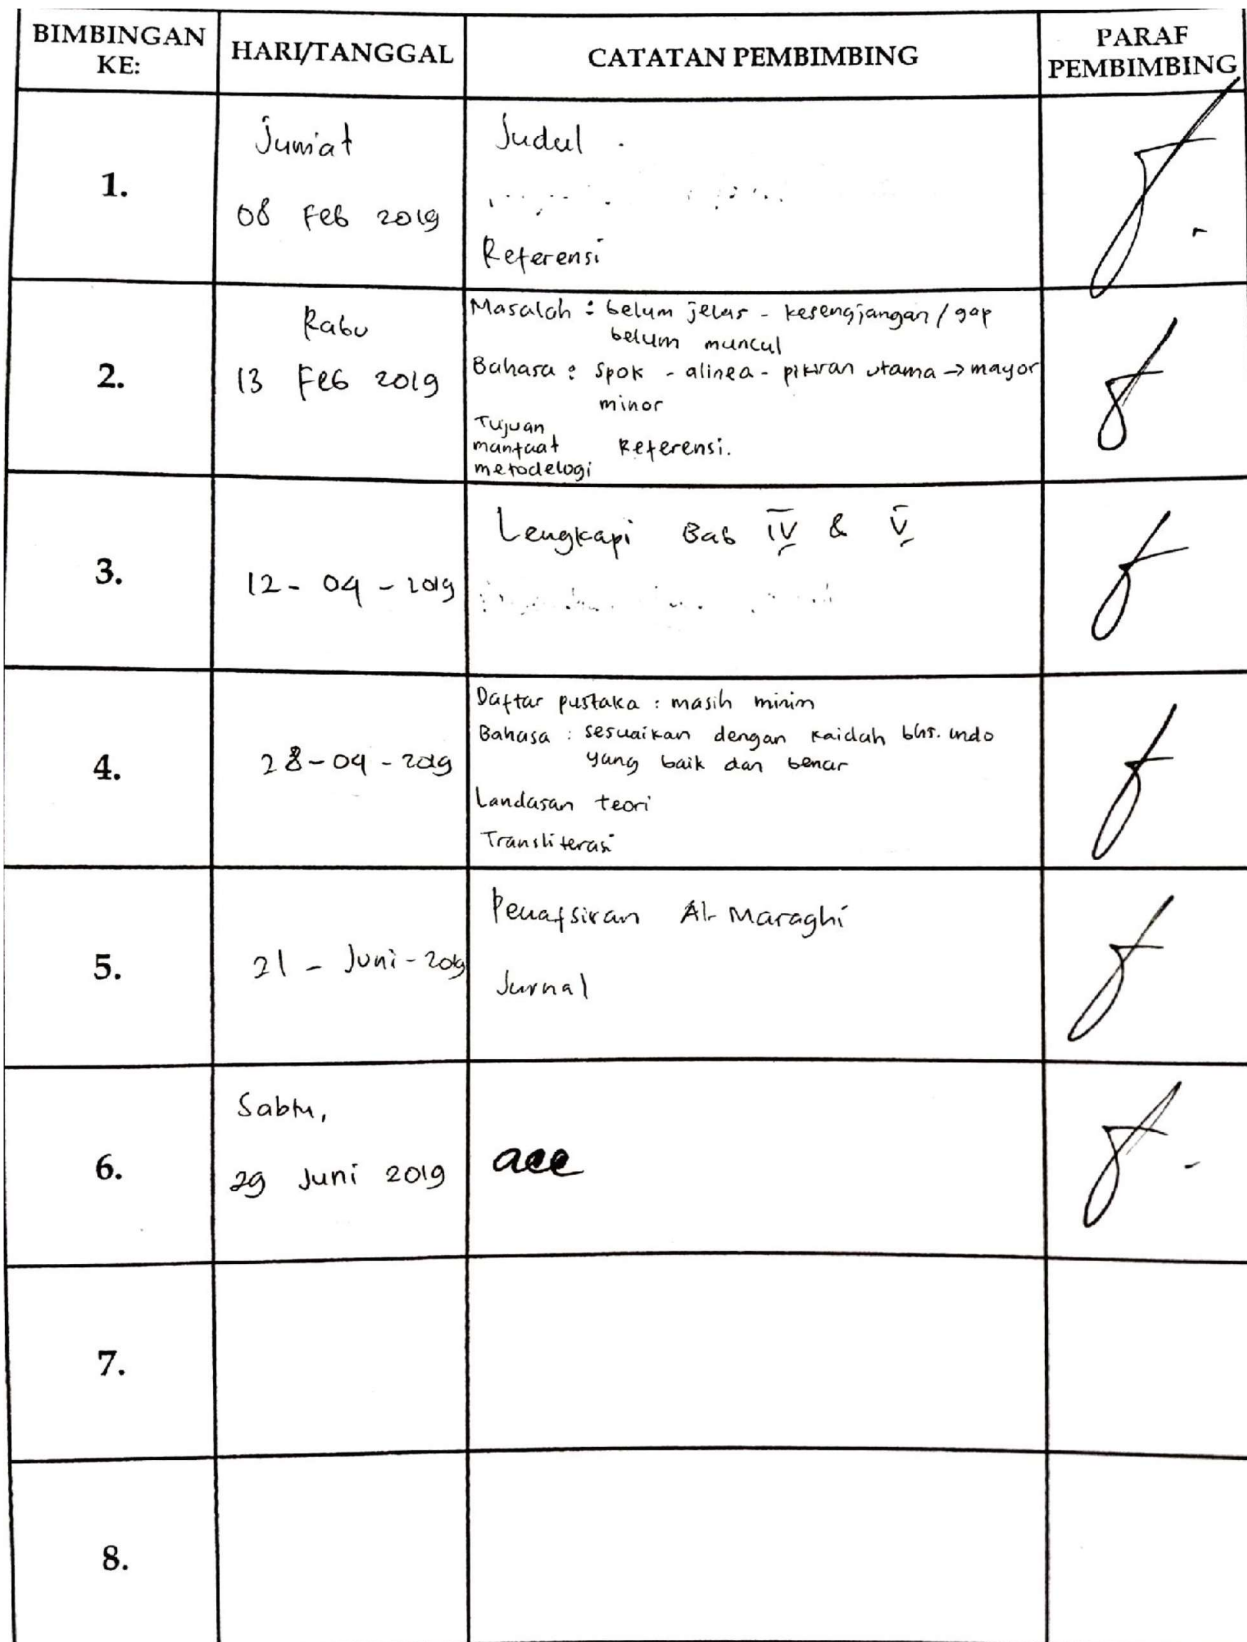 BIMBINGAN KE:
HARI/TANGGAL
CATATAN PEMBIMBING
PARAF PEMBIMBING
1.
Jum'at
08 Feb 2019
Judul .
Referensi
2.
Rabu
13 Feb 2019
Masalah : belum jelas - kesengjangan / gap
belum muncul
Bahasa : spok - alinea - pikiran utama → mayor
minor
Tujuan
manfaat Referensi.
metodelogi
3.
12 - 04 - 2019
Lengkapi Bab IV & V
4.
28 - 04 - 2019
Daftar pustaka : masih minim
Bahasa : sesuaikan dengan kaidah bhs. indo
yang baik dan benar
Landasan teori
Transliterasi
5.
21 - Juni - 2019
Penafsiran Al-Maraghi
Jurnal
6.
Sabtu,
29 Juni 2019
acc
7.
8.